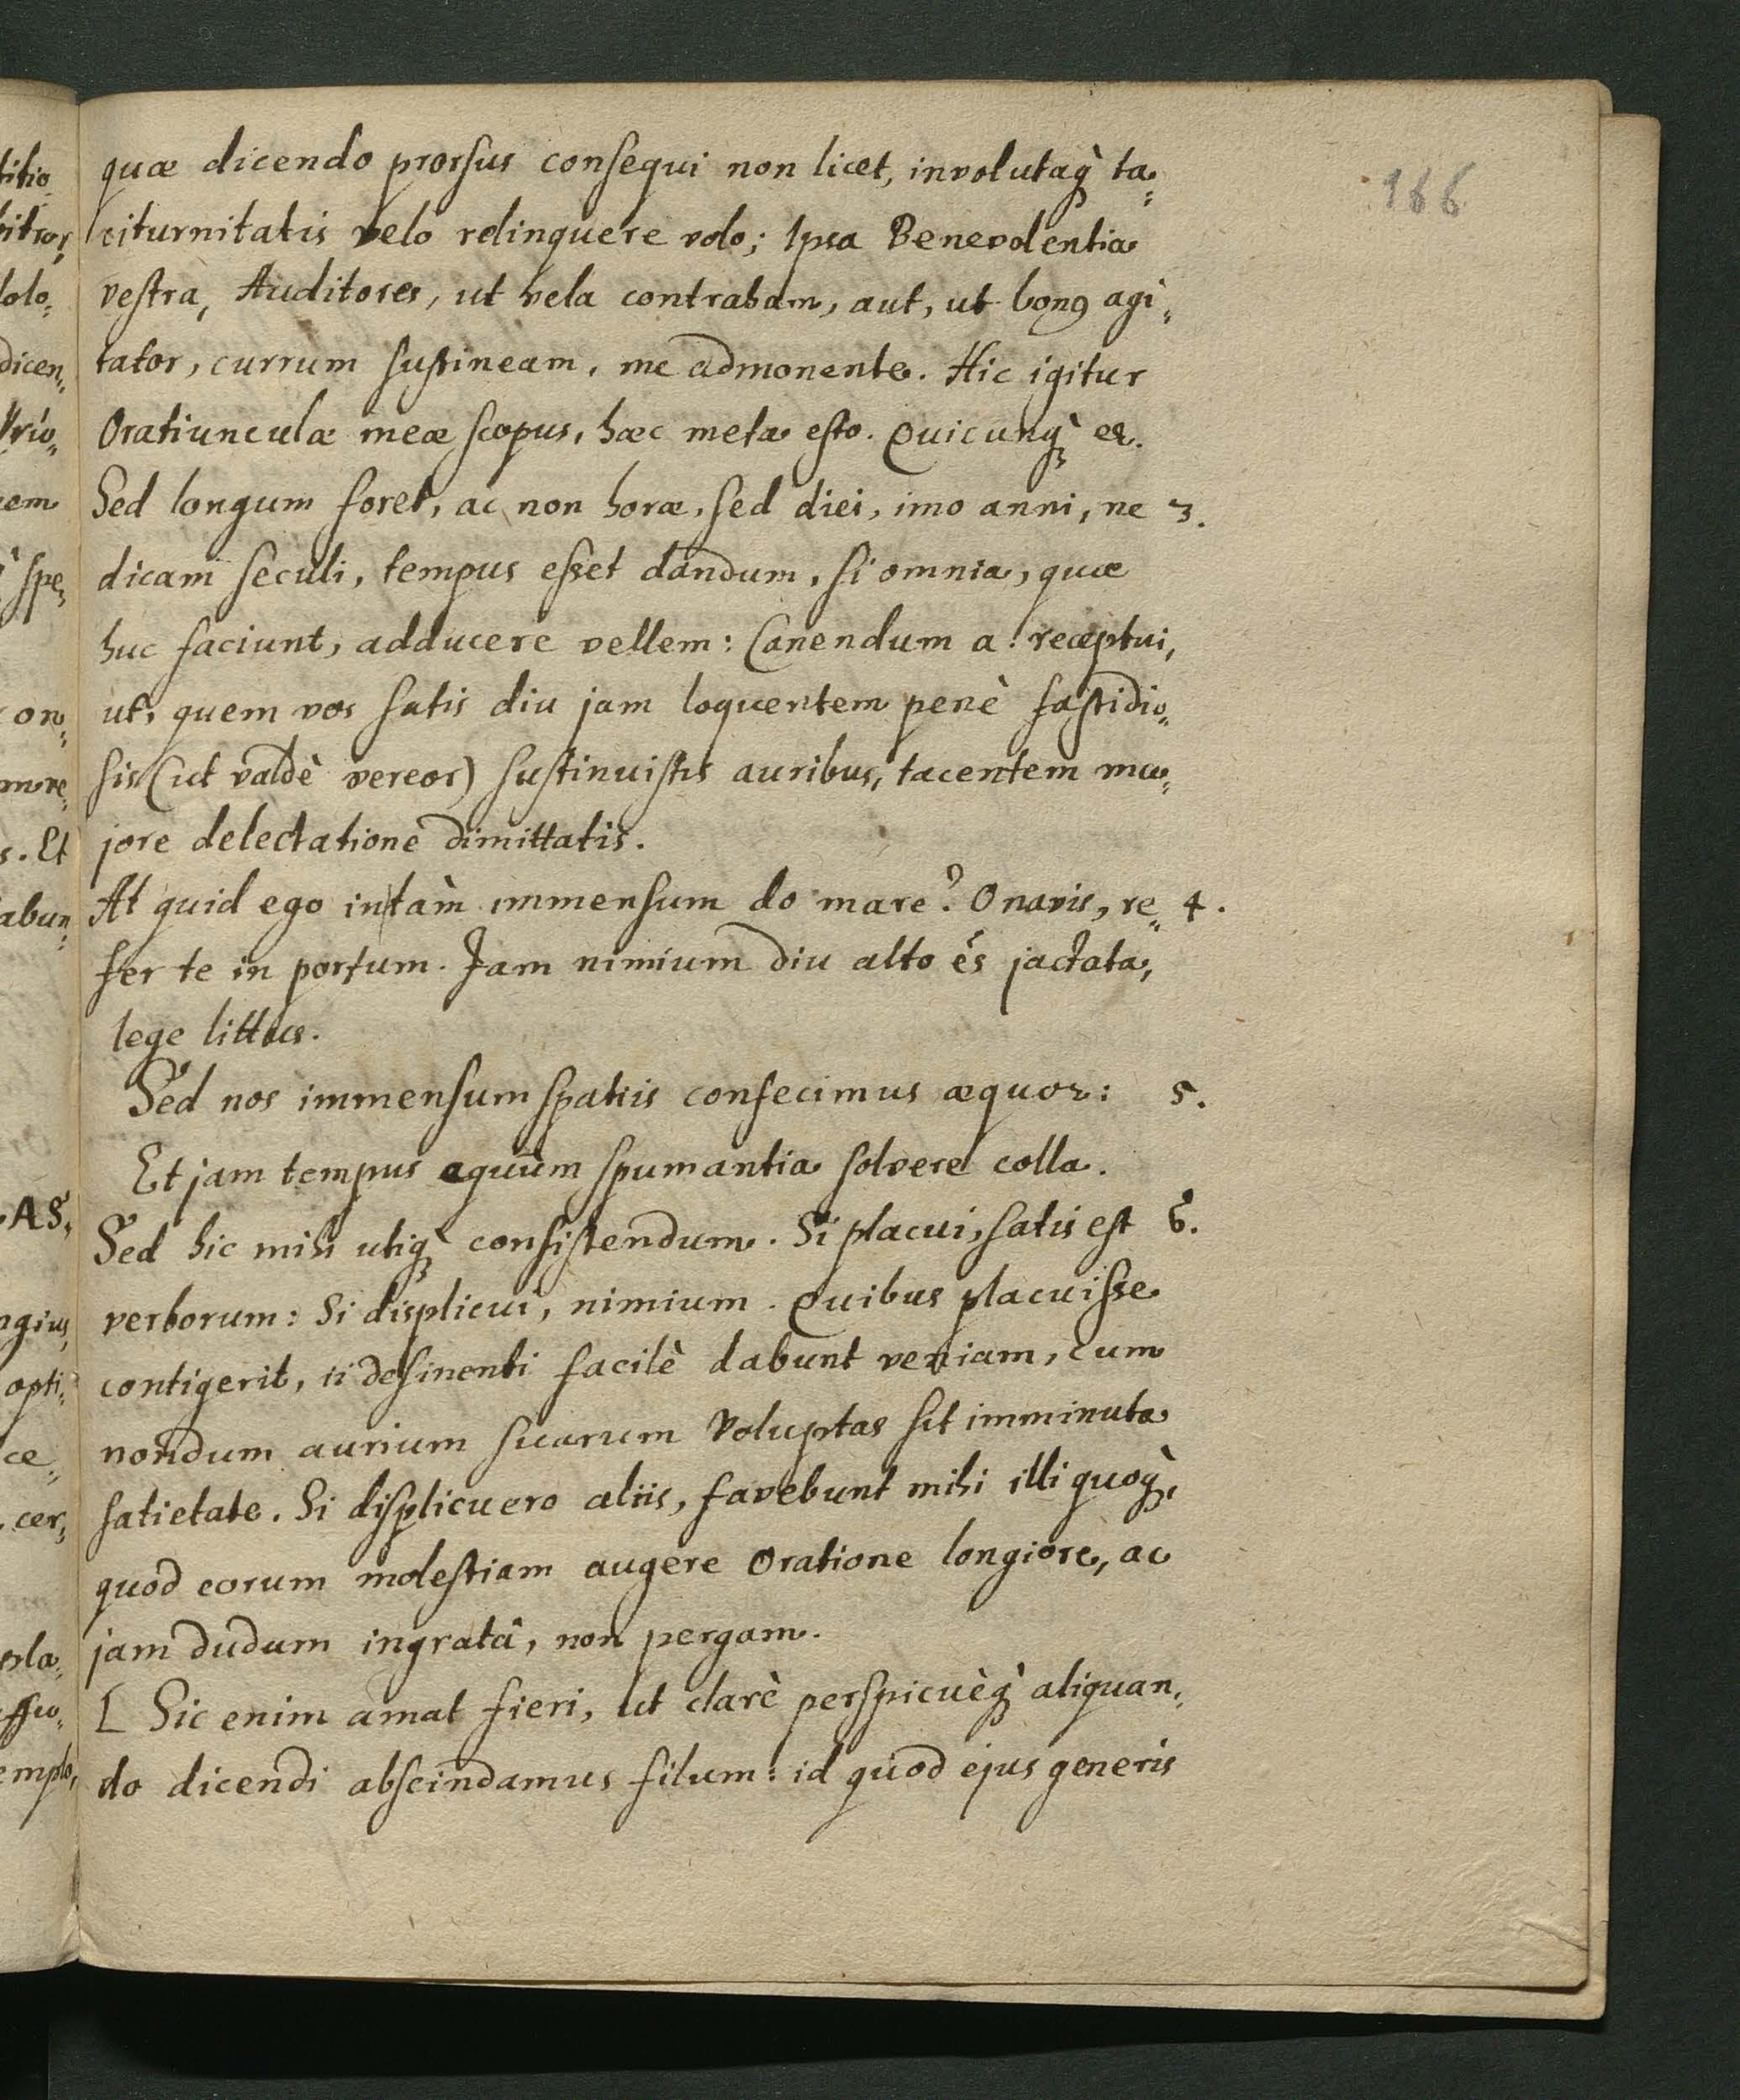 166
quæ dicendo prorsus consequi non licet, involutaq̀ ta„
citurnitatis velo relinquere volo; Ipsa Benevolentia
vestra, Auditores, ut vela contraham, aut, ut bon9 agi„
tator, currum sustineam, me admonente. Hic igitur
Oratiunculæ meæ scopus, hæc meta esto. Quicunq̀
Sed longum foret, ac non horæ, sed diei, imo anni, ne 3.
dicam seculi, tempus esset dandum, si omnia, quæ
huc faciunt, adducere vellem: Canendum a. receptui,
ut, quem vos satis diu jam loquentem penè fastidio„
sis (ut valdè vereor) sustinuistis auribus, tacentem ma„
jore delectatione dimittatis.
At quid ego in tàm immensum do mare? O navis, re„ 4.
fer te in portum. Jam nimium diu alto és jactata,
lege littus.
Sed nos immensum spatiis confecimus æquor: 5.
Et jam tempus equûm spumantia solvere colla.
Sed hic mihi utiq̀ consistendum. Si placui, satis est 6.
verborum: Si displicui, nimium. Quibus placuisse
contigerit, ii desinenti facilè dabunt veniam, cum
nondum aurium suarum voluptas sit imminuta
satietate. Si displicuero aliis, favebunt mihi illi quoq̀,
quod eorum molestiam augere Oratione longiore, ac
jam dudum ingratâ, non pergam.
[ Sic enim amat fieri, ut clarè perspicuèq̀ aliquan„
do dicendi abscindamus filum: id quod ejus generis